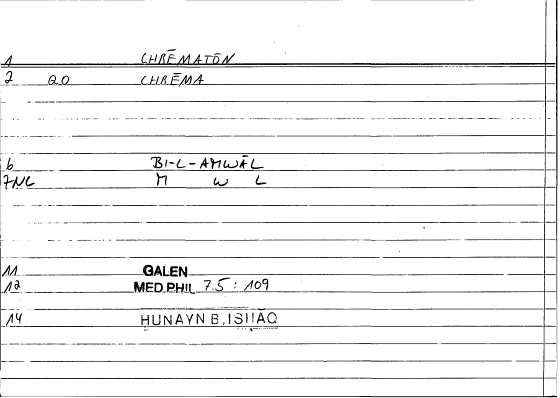 1 CHRĒMATŌN
2 QO CHRĒMA
6 BI-L-AMWĀL
7NC M W L
11 GALEN
12 MED.PHIL 7.5 : 109
14 HUNAYN B.ISHĀQ